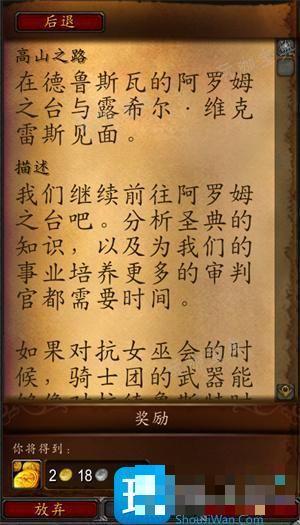 后退
高山之路
在德鲁斯瓦的阿罗姆
之台与露希尔·维克
雷斯见面。
描述
我们继续前往阿罗姆
之台吧。分析圣典的
知识，以及为我们的
事业培养更多的审判
官都需要时间。
如果对抗女巫会的时
候，骑士团的武器能
奖励
你将得到：
2 18
放弃
ShoujiWan.Com